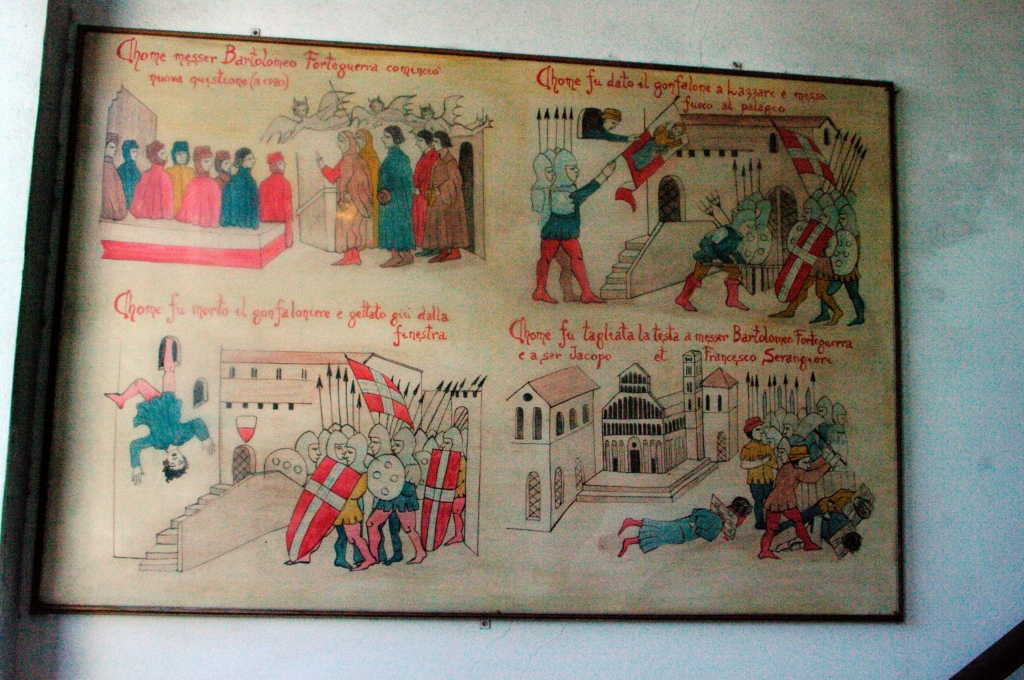 Chome messer Bartolomeo Forteguerra cominciò
nuova questione (a 1390)
Chome fu dato il gonfalone a Lazzare e messo
fuoco al palagio
Chome fu morto il gonfaloniere e gettato giù dalla
finestra
Chome fu tagliata la testa a messer Bartolomeo Forteguerra
e a ser Jacopo et Francesco Serangiore